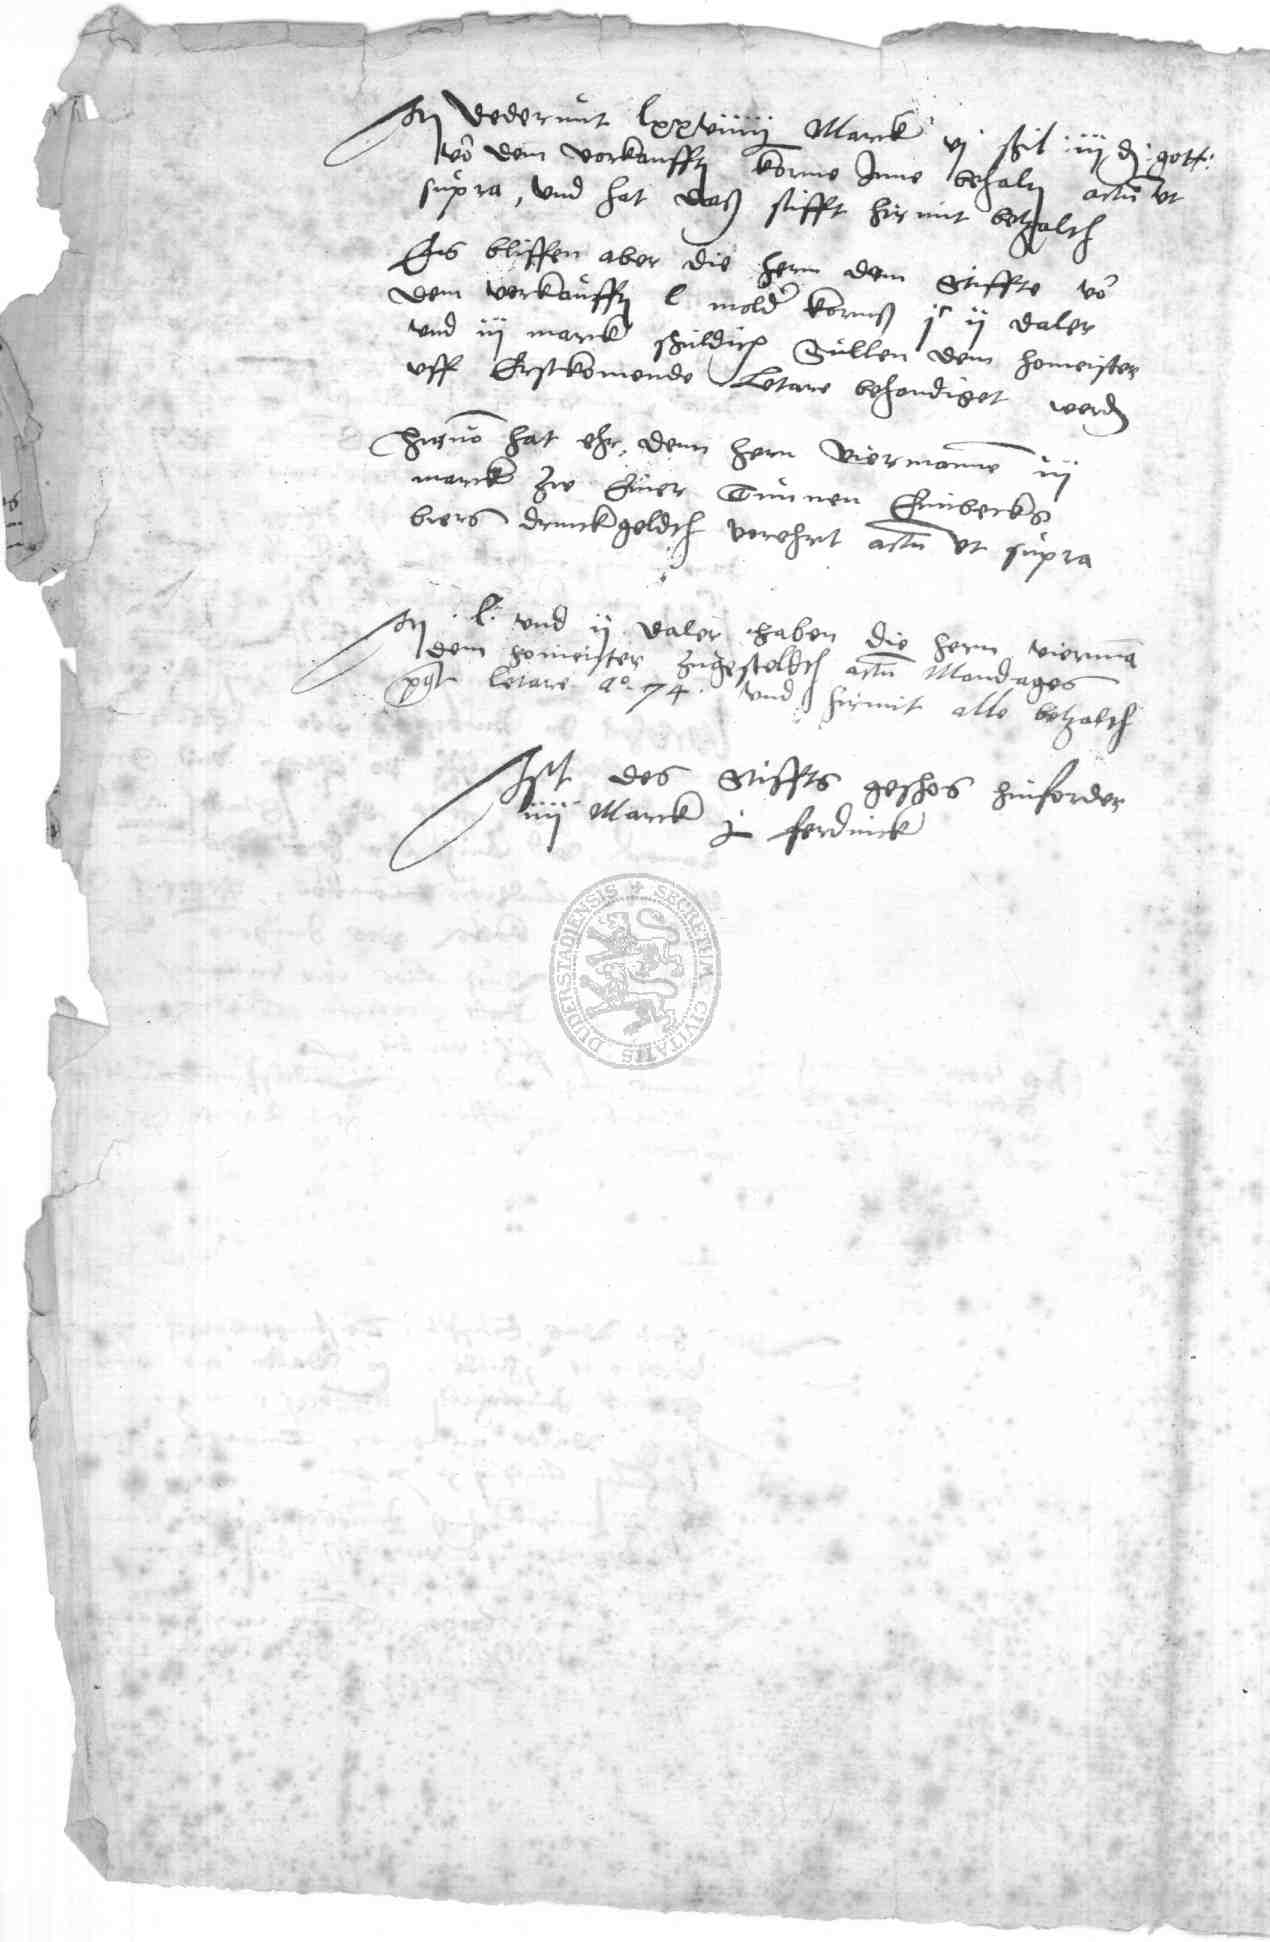 dederunt lxxviiii Marck vj shil iiij d gott:
vo dem vorkaufften korne Inne behalten actum ut
supra, und hat daß stifft hirmit betzalth
Es bliffen aber die hern dem Stiffte vo
dem verkaufften l mold korns jc ij daler
und iij marck shuldich Sullen dem homeister
uff Erstkomende Letare behandiget werden
hiruo hat ehr denn hern viermanne iij
marck zw Einer Tunnen Einbecks
biers drinckgeldth verehrt actum ut supra
l und ij daler haben die hern vierma
dem homeister zugesteldth actum Mondages
post letare Ao. 74. und hirmit alle betzalth
Ist des Stiffts geshos hinforder
iiij Marck j ferdinck
SECRETUM CIVITATIS DUDERSTADIENSIS